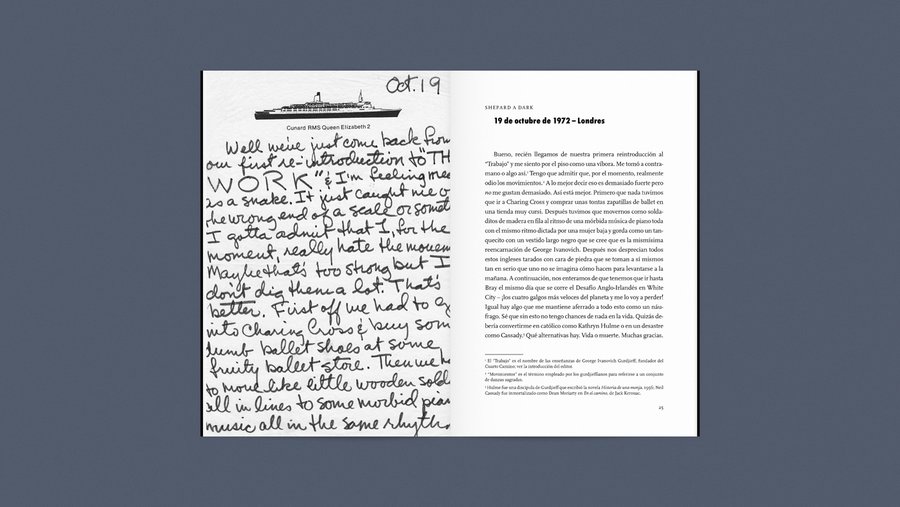 Oct. 19
Cunard RMS Queen Elizabeth 2
Well we've just come back from
our first re-introduction to "TH
WORK" & I'm feeling mea
as a snake. It just caught me o
the wrong end of a scale or somet
I gotta admit that I, for the
moment, really hate the movem
Maybe that's too strong but I
don't dig them a lot. That's
better. First off we had to g
into Charing Cross & buy som
dumb ballet shoes at some
fruity ballet store. Then we h
to move like little wooden sold
all in lines to some morbid pian
music all in the same rhyth
SHEPARD A DARK
19 de octubre de 1972 – Londres
Bueno, recién llegamos de nuestra primera reintroducción al
"Trabajo" y me siento por el piso como una víbora. Me tomó a contra-
mano o algo así.¹ Tengo que admitir que, por el momento, realmente
odio los movimientos.² A lo mejor decir eso es demasiado fuerte pero
no me gustan demasiado. Así está mejor. Primero que nada tuvimos
que ir a Charing Cross y comprar unas tontas zapatillas de ballet en
una tienda muy cursi. Después tuvimos que movernos como solda-
ditos de madera en fila al ritmo de una mórbida música de piano toda
con el mismo ritmo dictada por una mujer baja y gorda como un tan-
quecito con un vestido largo negro que se cree que es la mismísima
reencarnación de George Ivanovich. Después nos desprecian todos
estos ingleses tarados con cara de piedra que se toman a sí mismos
tan en serio que uno no se imagina cómo hacen para levantarse a la
mañana. A continuación, nos enteramos de que tenemos que ir hasta
Bray el mismo día que se corre el Desafío Anglo-Irlandés en White
City – ¡los cuatro galgos más veloces del planeta y me lo voy a perder!
Igual hay algo que me mantiene aferrado a todo esto como un náu-
frago. Sé que sin esto no tengo chances de nada en la vida. Quizás de-
bería convertirme en católico como Kathryn Hulme o en un desastre
como Cassady.³ Qué alternativas hay. Vida o muerte. Muchas gracias.
¹ El "Trabajo" es el nombre de las enseñanzas de George Ivanovich Gurdjieff, fundador del
Cuarto Camino; ver la introducción del editor.
² "Movimientos" es el término empleado por los gurdjieffianos para referirse a un conjunto
de danzas sagradas.
³ Hulme fue una discípula de Gurdjieff que escribió la novela Historia de una monja, 1956; Neal
Cassady fue inmortalizado como Dean Moriarty en En el camino, de Jack Kerouac.
25